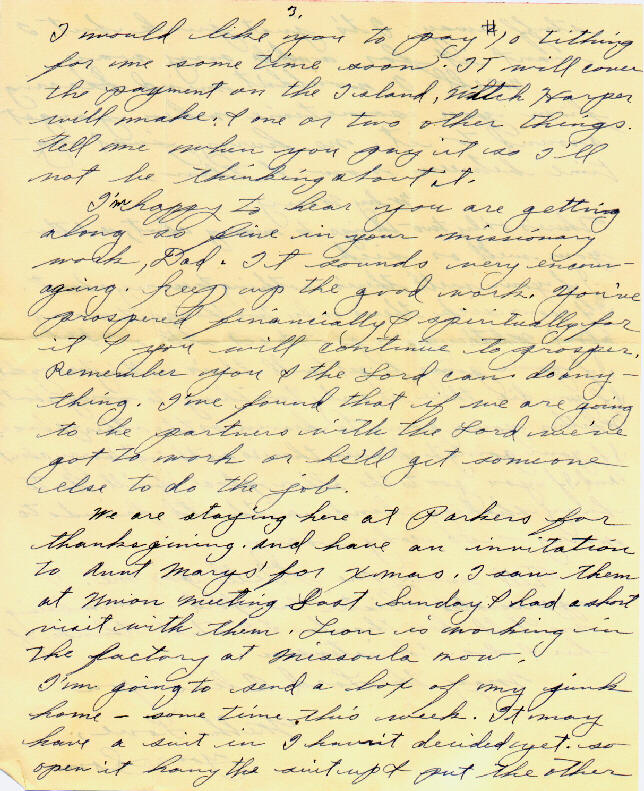 3.
I would like you to pay $10 tithing
for me some time soon. IT will cover
the payment on the Island, Mitch Harper
will make. & one or two other things.
tell me when you pay it so I'll
not be thinking about it.
I'm happy to hear you are getting
along so fine in your missionary
work, Dad. It sounds very encour-
aging. Keep up the good work. You've
prospered financially & spiritually for
it & you will continue to prosper.
Remember you & the Lord can do any-
thing. I've found that if we are going
to be partners with the Lord we've
got to work or he'll get someone
else to do the job.
We are staying here at Parkers for
thanksgiving. and have an invitation
to Aunt Marys' for Xmas. I saw them
at Union meeting Last Sunday & had a short
visit with them. Lion is working in
the factory at Missoula now.
I'm going to send a box of my junk
home - some time this week. It may
have a suit in I havn't decided yet. so
open it hang the suit up & put the other